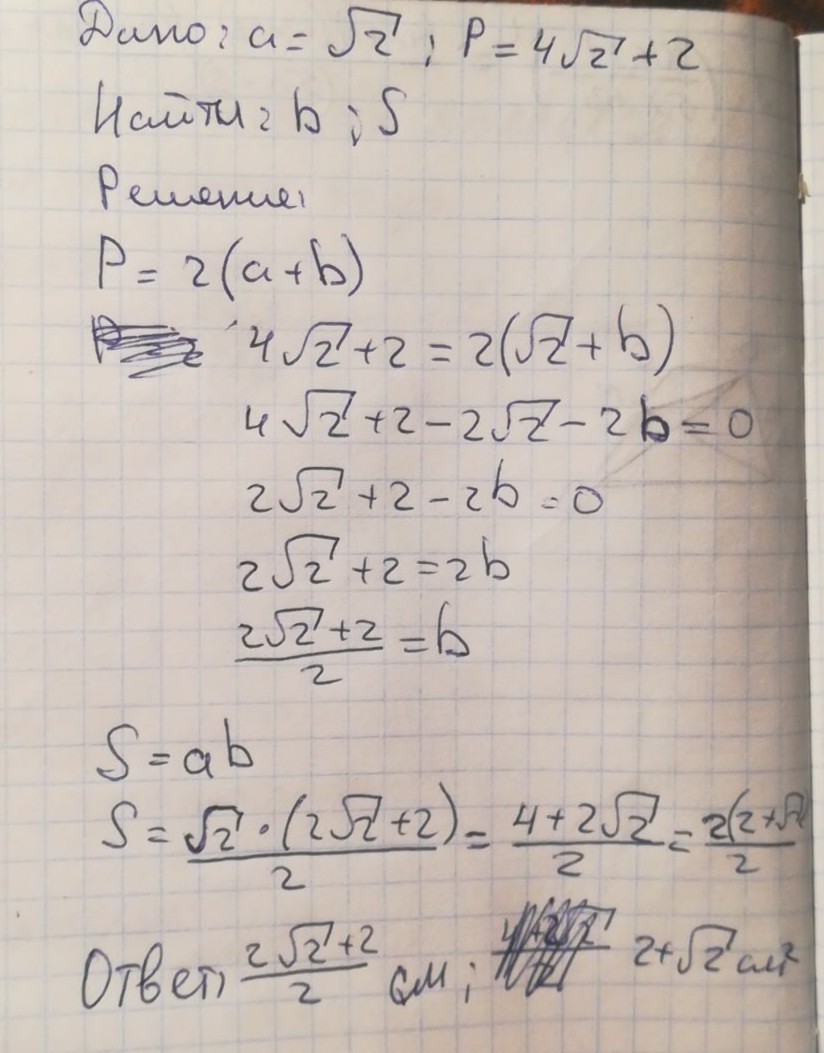 Дано: a = √2 ; P = 4√2 + 2
Найти: b ; S
Решение:
P = 2(a + b)
4√2 + 2 = 2(√2 + b)
4√2 + 2 − 2√2 − 2b = 0
2√2 + 2 − 2b = 0
2√2 + 2 = 2b
(2√2 + 2)/2 = b
S = ab
S = (√2 · (2√2 + 2))/2 = (4 + 2√2)/2 = (2(2 + √2))/2
Ответ: (2√2 + 2)/2 см ; 2 + √2 см²